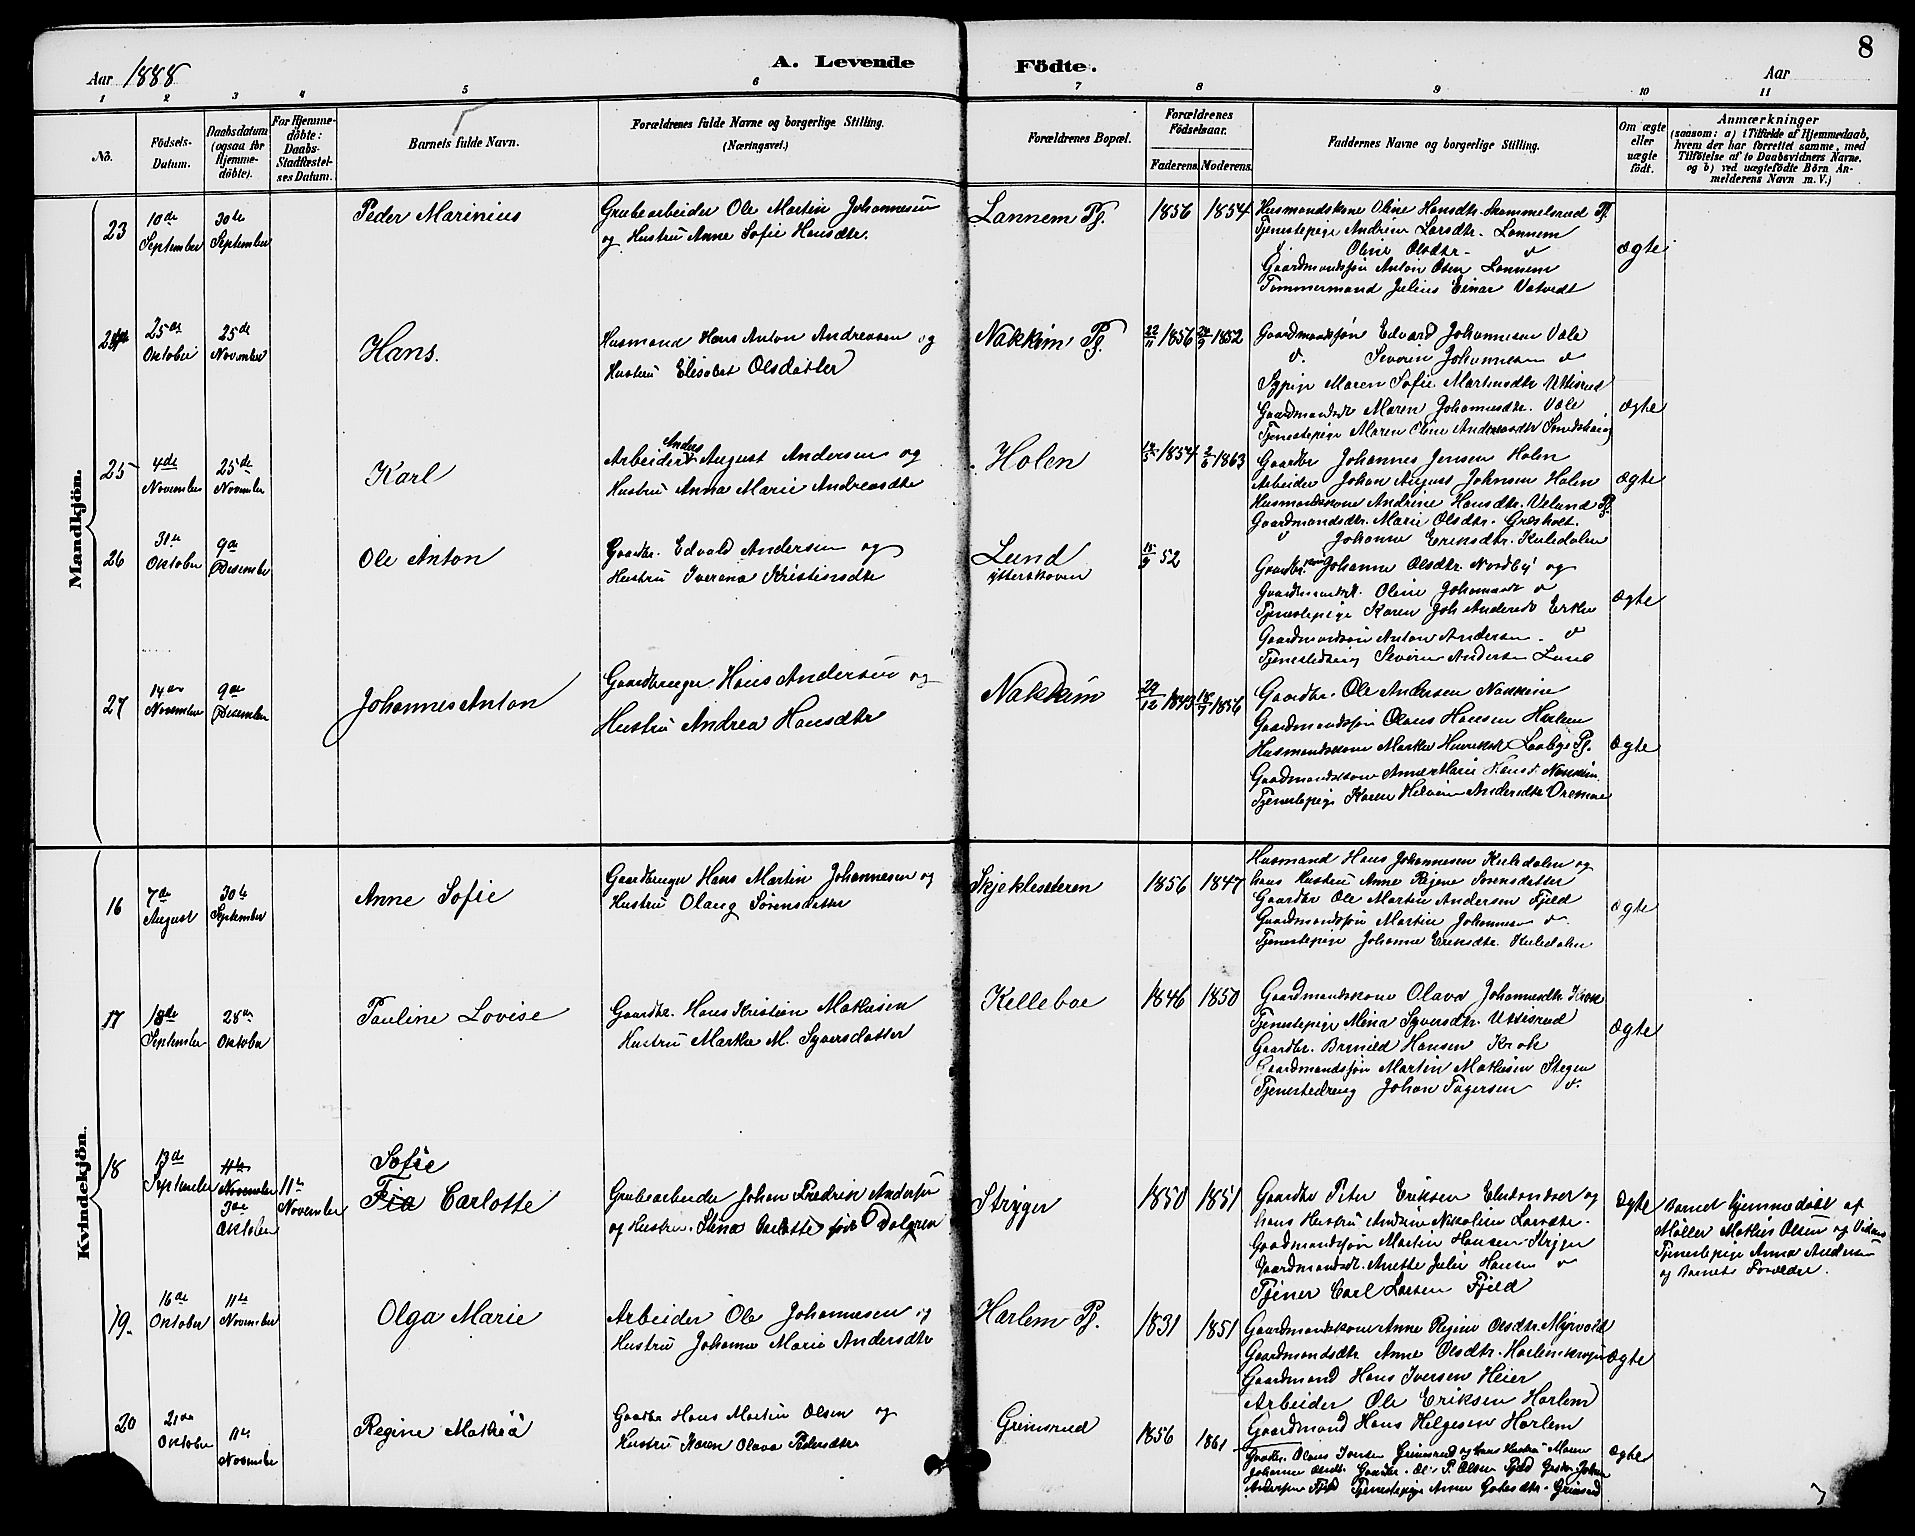 8
Aar 1888
A. Levende Födte.
Aar
1 2 3 4 5 6 7 8 9 10 11
No.
Födsels-Datum.
Daabsdatum (ogsaa for Hjemme-döbte).
For Hjemme-döbte: Daabs-Stadfæstel-ses Datum.
Barnets fulde Navn.
Forældrenes fulde Navne og borgerlige Stilling.
(Næringsvei.)
Forældrenes Bopæl.
Forældrenes Födselsaar.
Faderens. Moderens.
Faddernes Navne og borgerlige Stilling.
Om ægte eller uægte födt.
Anmærkninger
(saasom: a) i Tilfælde af Hjemmedaab,
hvem der har forrettet samme, med
Tilföielse af to Daabsvidners Navne.
og b) ved uægtefödte Börn An-
melderens Navn m. V.)
Mandkjön.
23
10de September
30te September
Peder Marinius
Grubearbeider Ole Martin Johannesen
og Hustru Anne Sofie Hansdtr.
Lannem Pg.
1856 1854
Husmandskone Oline Hansdtr. Skammelsrud Pg.
Tjenestepige Andrine Larsdtr. Lannem
Oline Olsdtr.
Gaardmandssøn Anton Olsen Lannem
Tømmermand Julius Einar Vatvedt
ægte
24
25de Oktober
25de November
Hans.
Husmand Hans Anton Andreassen og
Hustru Elisabet Olsdatter
Nakkim Pg.
22/11 1856 1852
Gaardmandssøn Edvard Johannesen Vale
Severin Johannesen
Sypige Maren Sofie Martinsdtr Uttisrud
Gaardmandsdtr Maren Johannesdtr. Vale
Tjenestepige Maren Oline
ægte
25
4de November
25de November
Karl
Anders
Arbeider August Andersen og
Hustru Anna Marie Andreasdtr
Holen
1854 1863
Gaardbr Johannes Jensen Holen
Arbeider Johan August Johnsen Holen
Husmandskone Andrine Hansdtr. Veland Pg.
Gaardmandsdtr. Marie Olsdtr. Græsholt.
Johanne Eriksdtr. Kuledalen
ægte
26
31te Oktober
9de Desember
Ole Anton
Gaardbr. Edvald Andersen og
Hustru Iverena Kristensdtr
Lund
Ytterskoven
15/9 52
Gaardbr. Johanne Olsdtr. Nordby og
Gaardmandsdtr. Oline
Tjenestepige Karen Joh
Gaardmandssøn Anton Andersen
Tjenestedreng Severin Andersen Lund
ægte
27
14de November
9de Desember
Johannes Anton
Gaardbruger Hans Andersen og
Hustru Andrea Hansdtr
Nakkim
29/12 1843 1856
Gaardbr. Ole Andersen Nakkim
Gaardmandssøn Olaus Hansen Harlem
Husmandskone Marthe Pg.
Gaardmandskone Anne Marie Nakkim
Tjenestepige Karen Andersdtr
ægte
Kvindekjön.
16
7de August
30te September
Anne Sofie
Gaardbruger Hans Martin Johannesen og
Hustru Olaug Sørensdatter
Skjekleseteren
1856 1847
Husmand Hans Johannesen Kuledalen og
hans Hustru Anne Regine Sørensdatter
Gaardbr Ole Martin Andersen Fjeld
Gaardmandssøn Martin Johannesen
Tjenestepige Johanne Eriksdtr. Kuledalen
ægte
17
18de September
28de Oktober
Pauline Lovise
Gaardbr. Hans Kristian Mathisen
Hustru Marthe M. Syversdatter
Kelleboe
1846 1850
Gaardmandskone Olava Johannesdtr Krok
Tjenestepige Mina Syversdtr. Uttisrud
Gaardbr. Brynild Hansen Krok
Gaardmandssøn Martin Mathisen Stegen
Tjenestedreng Johan Fagersen
ægte
18
13de September
11te November
3de Oktober
11te November
Sofie
Fia Carlotte
Grubearbeider Johan Fredrik Andersen
og Hustru. Stina Carlotte født Dalgren
Stryger
1850 1851
Gaardbr Peter Eriksen og
hans Hustru Andrine Nikoline Larsdtr.
Gaardmandssøn Martin Hansen Stryger
Gaardmandsdtr. Anette Julie Hansen
Tjener Carl Larsen Fjeld
ægte
Barnet hjemmedøbt af
Møller Mathis Olsen og Vidnes
Tjenestepige Anna Andersen
og Barnets Forældre.
19.
16de Oktober
11te November
Olga Marie
Arbeider Ole Johannesen og
Hustru Johanne Marie Andersdtr
Harlem Pg.
1831 1851
Gaardmandskone Anne Regine Olsdtr. Myrvold
Gaardmandsdtr Anne Olsdtr. Harlemskogen
Gaardmand Hans Iversen Heier
Arbeider Ole Eriksen Harlem
Gaardmand Hans Helgesen Harlem
ægte
20
21de Oktober
11te November
Regine Mathea
Gaardbr Hans Martin Olsen og
Hustru Karen Olava Pedersdtr
Grimsrud
1856 1861
Gaardbr. Olaus Iversen Grimsrud og hans Hustru Maren
Johanne Olsdtr. Gaardbr. Ole P. Olsen Fjeld Johan
Andersen Fjeld Tjenestepige Anne Grimsrud
ægte